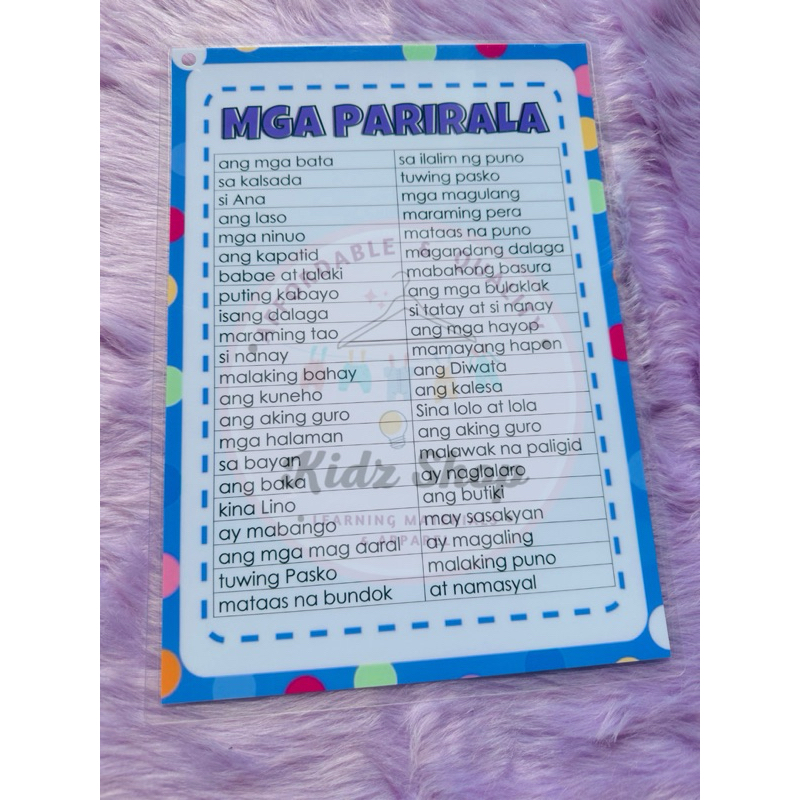 MGA PARIRALA
ang mga bata
sa kalsada
si Ana
ang laso
mga ninuo
ang kapatid
babae at lalaki
puting kabayo
isang dalaga
maraming tao
si nanay
malaking bahay
ang kuneho
ang aking guro
mga halaman
sa bayan
ang baka
kina Lino
ay mabango
ang mga mag aaral
tuwing Pasko
mataas na bundok
sa ilalim ng puno
tuwing pasko
mga magulang
maraming pera
mataas na puno
magandang dalaga
mabahong basura
ang mga bulaklak
si tatay at si nanay
ang mga hayop
mamayang hapon
ang Diwata
ang kalesa
Sina lolo at lola
ang aking guro
malawak na paligid
ay naglalaro
ang butiki
may sasakyan
ay magaling
malaking puno
at namasyal
AFFORDABLE & QUALITY
Kidz Shop
LEARNING MATERIALS
& APPAREL